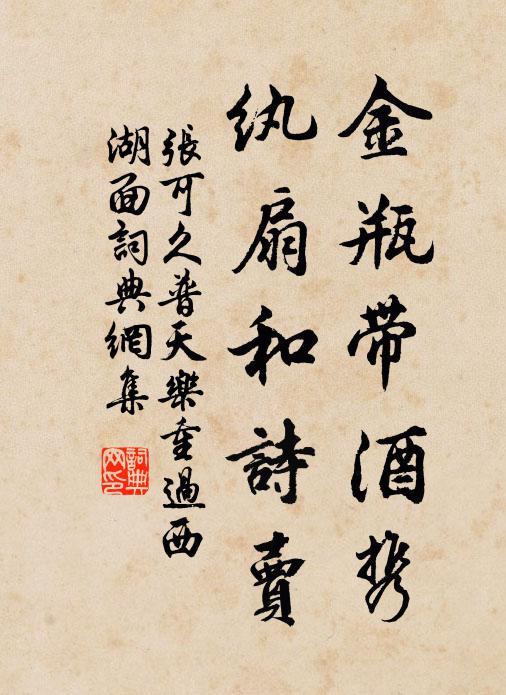 金瓶带酒携
纨扇和詩賣
張可久普天樂重過西
湖面詞典網集
詞典网印